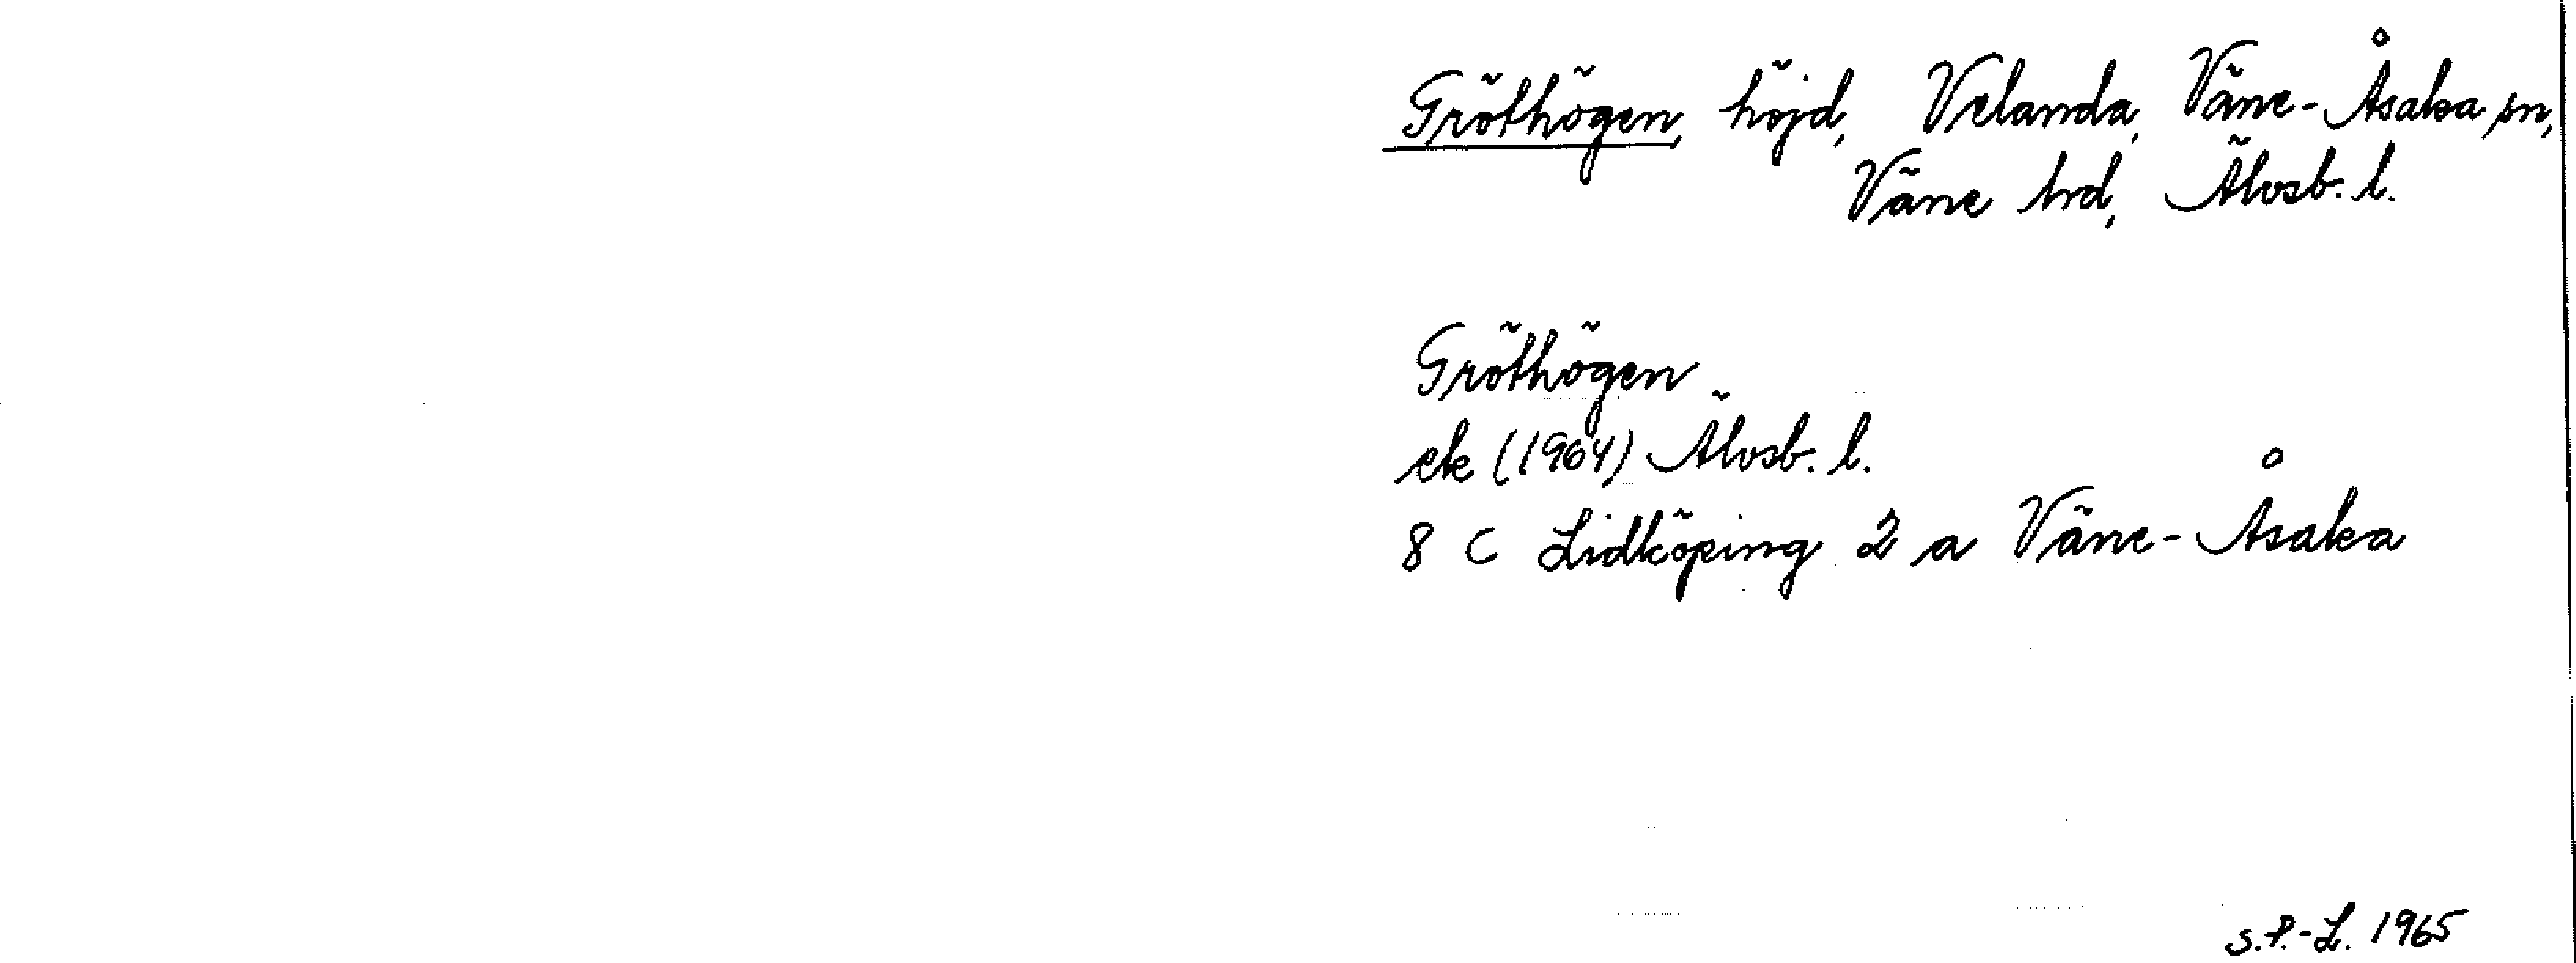 Gröthögen, höjd, Velanda, Väne-Åsaka sn,
Väne hd, Älvsb. l.
Gröthögen
ek (1964) Älvsb. l.
8 C Lidköping 2 a Väne-Åsaka
S.P.-L. 1965